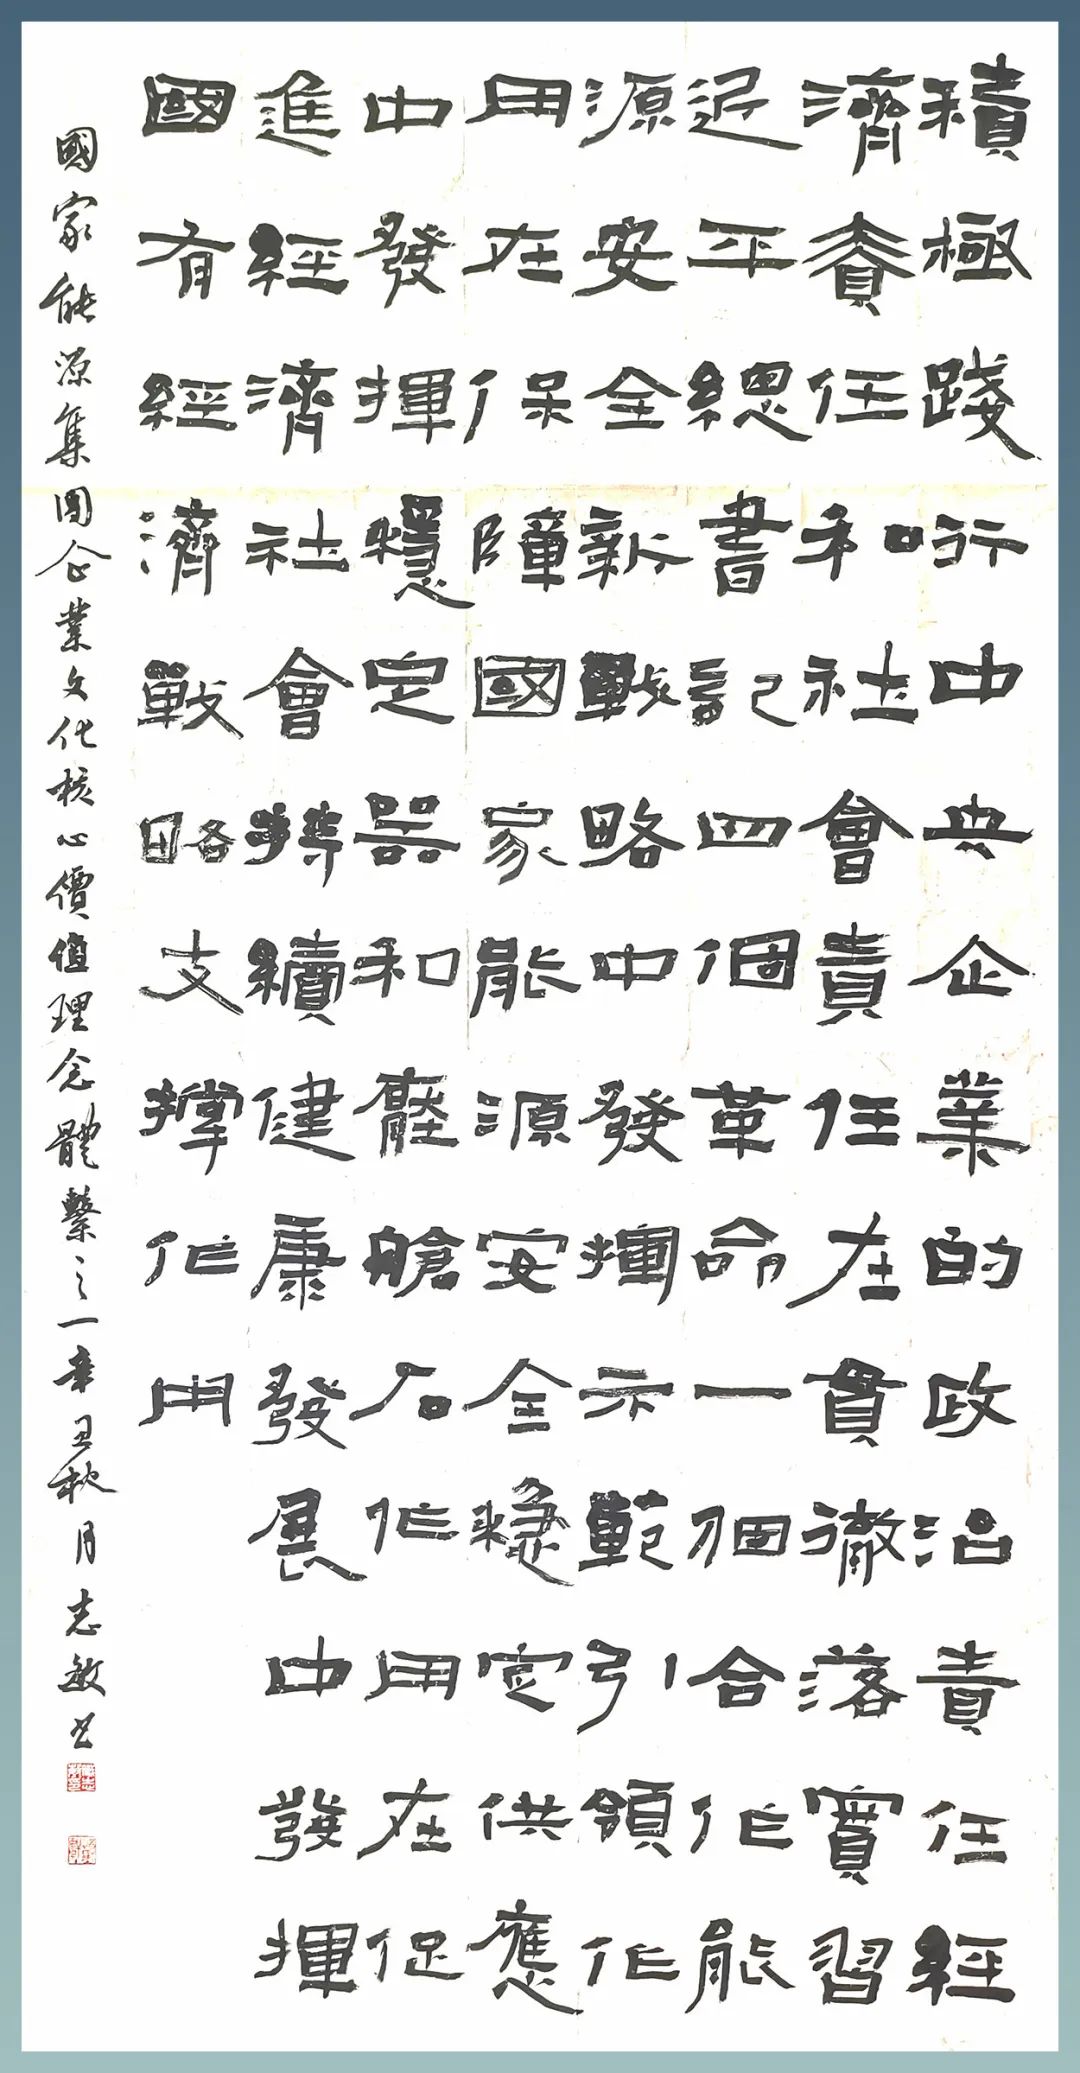 積極踐行中央企業的政治責任經
濟責任和社會責任在貫徹落實習
近平總書記四個革命一個合作能
源安全新戰略中發揮示範引領作
用在保障國家能源安全穩定供應
中發揮穩定器和壓艙石作用在促
進經濟社會持續健康發展中發揮
國有經濟戰略支撐作用
國家能源集團企業文化核心價值理念體繫之一辛丑秋月志敏书